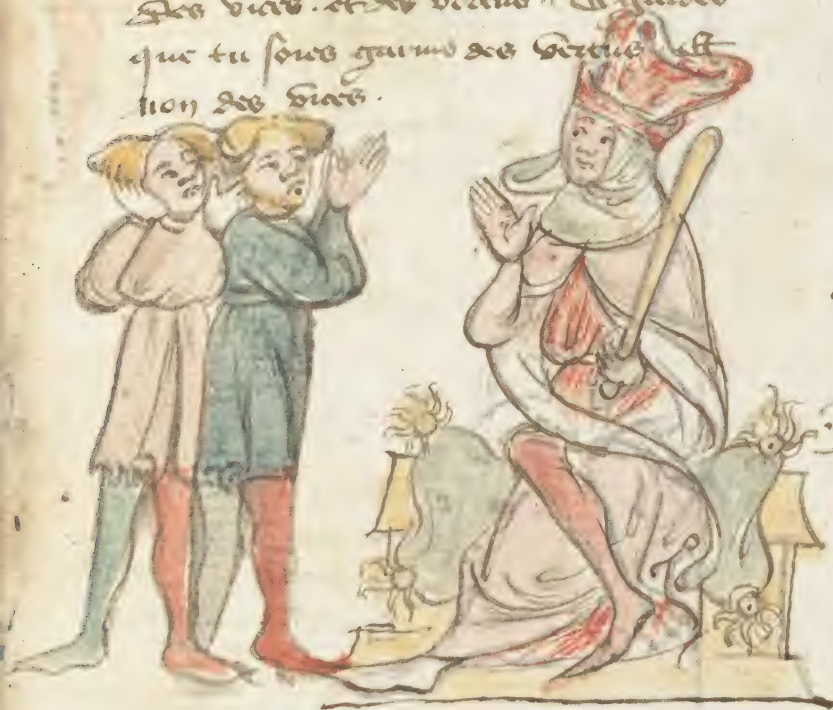 Des vices. et des vertus. Et gardes
que tu soies garnis des vertus et
non des vices.